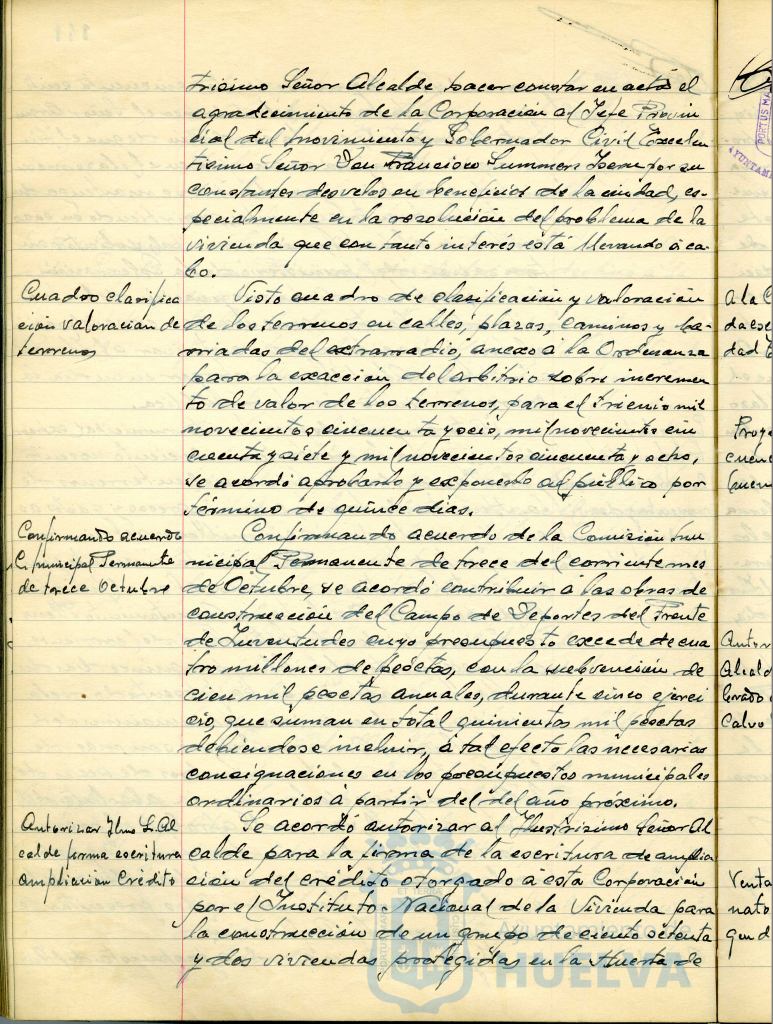 trisimo Señor Alcalde hacer constar en acta el
agradecimiento de la Corporación al Jefe Provin
cial del Movimiento y Gobernador Civil Excelen
tisimo Señor Don Francisco Summers Isern por sus
constantes desvelos en beneficios de la ciudad, es-
pecialmente en la resolución del problema de la
vivienda que con tanto interés está llevando á ca-
bo.
Cuadro clasifica
ción valoración de
terrenos
Visto cuadro de clasificación y valoración
de los terrenos en calles, plazas, caminos y ba-
rriadas del extrarradio, anexo á la Ordenanza
para la exacción del arbitrio sobre incremen
to de valor de los terrenos, para el trienio mil
novecientos cincuenta y seis, mil novecientos cin
cuenta y siete y mil novecientos cincuenta y ocho,
se acordó aprobarlo y exponerlo al público por
término de quince dias.
Confirmando acuerdo
C. municipal Permanente
de trece Octubre
Confirmando acuerdo de la Comisión Mu
nicipal Permanente de trece del corriente mes
de Octubre, se acordó contribuir á las obras de
construcción del Campo de Deportes del Frente
de Juventudes cuyo presupuesto excede de cua
tro millones de pesetas, con la subvención de
cien mil pesetas anuales, durante cinco ejerci
cio, que suman en total quinientas mil pesetas
debiendose incluir, á tal efecto las necesarias
consignaciones en los presupuestos municipales
ordinarios á partir del del año próximo.
Autorizar Ilmo Sr. Al
calde firma escritura
ampliación Crédito
Se acordó autorizar al Ilustrisimo Señor Al
calde para la firma de la escritura de amplia
ción del crédito otorgado á esta Corporación
por el Instituto Nacional de la Vivienda para
la construcción de un grupo de ciento setenta
y dos viviendas protegidas en la Huerta de
HUELVA
a la C
dad
Proye
cuen
Autor
Alcald
Calvo
Venta
nato
que d